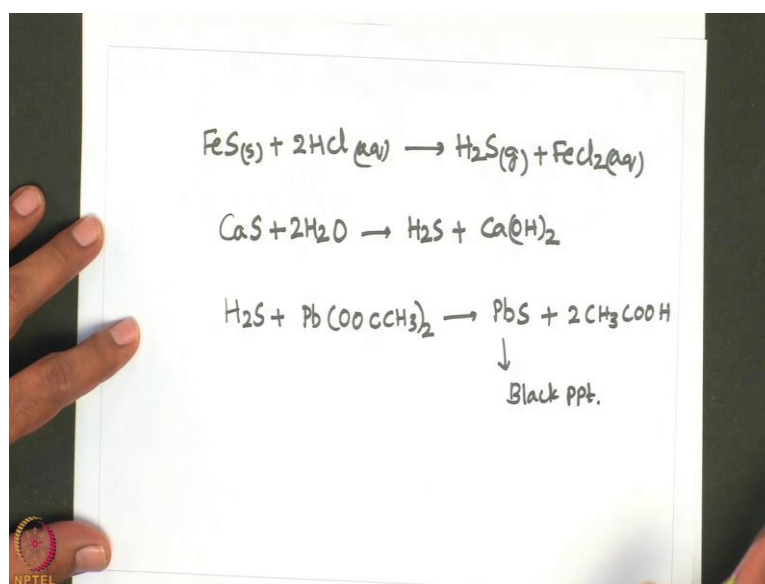 FeS(s) + 2HCl (aq) ⟶ H2S(g) + FeCl2(aq)
CaS + 2H2O ⟶ H2S + Ca(OH)2
H2S + Pb(OOCCH3)2 ⟶ PbS + 2CH3COOH
↓
Black ppt.
NPTEL